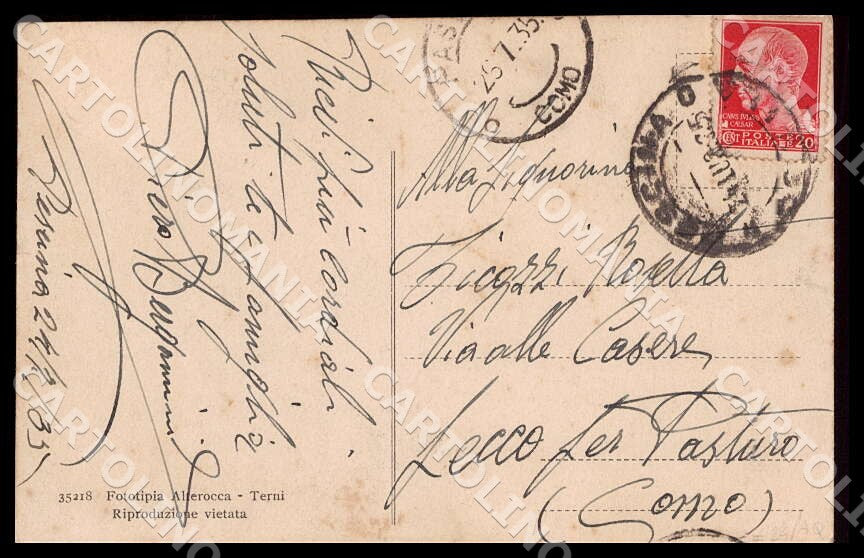 Ricevi più cordiali
saluti te e famiglia
Piero
Pescina 24/7/35
35218 Fototipia Alterocca - Terni
Riproduzione vietata
PAS
25.7.35
COMO
CAIVS IVLIVS
CAESAR
CENT POSTE
ITALIANE 20
PESCINA
Alla Signorina
Ticozzi Rosella
Via alle Casere
Lecco per Pasturo
(Como)
CARTOLINOMANIA